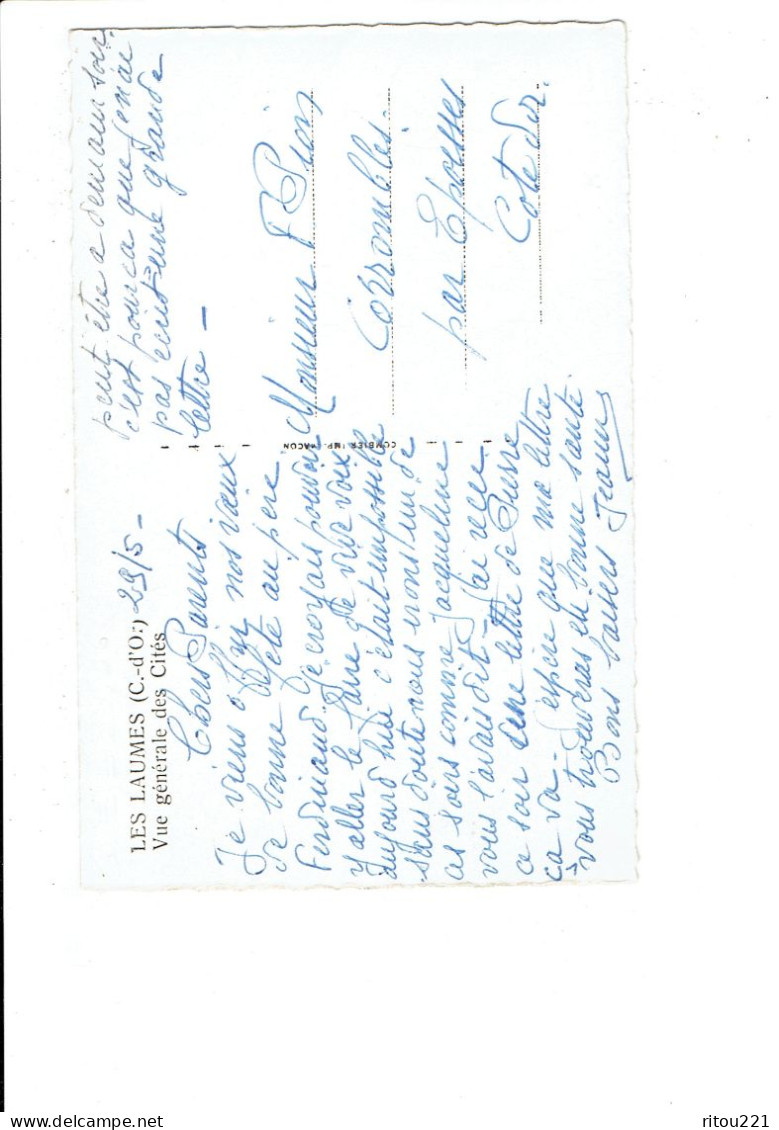 LES LAUMES (C.-d'O.) 29/5 -
Vue générale des Cités
Chers Parents
Je viens offrir nos vœux
de bonne fête au père
Ferdinand. Je croyais pouvoir
y aller le faire de vive voix
aujourd'hui c'était impossible
sans doute nous irons un de
ces soirs comme Jacqueline
vous l'avais dit - J'ai reçu
ce soir une lettre de Pierre
ça va - J'espère que ma lettre
vous trouveras en bonne santé
Bons baisers
peut être a demain soir
c'est pour ça que je n'ai
pas écrit une grande
lettre -
COMBIER IMP. MACON
Monsieur F
Corrombles.
par Epoisses
Cote d'Or.
ritou221